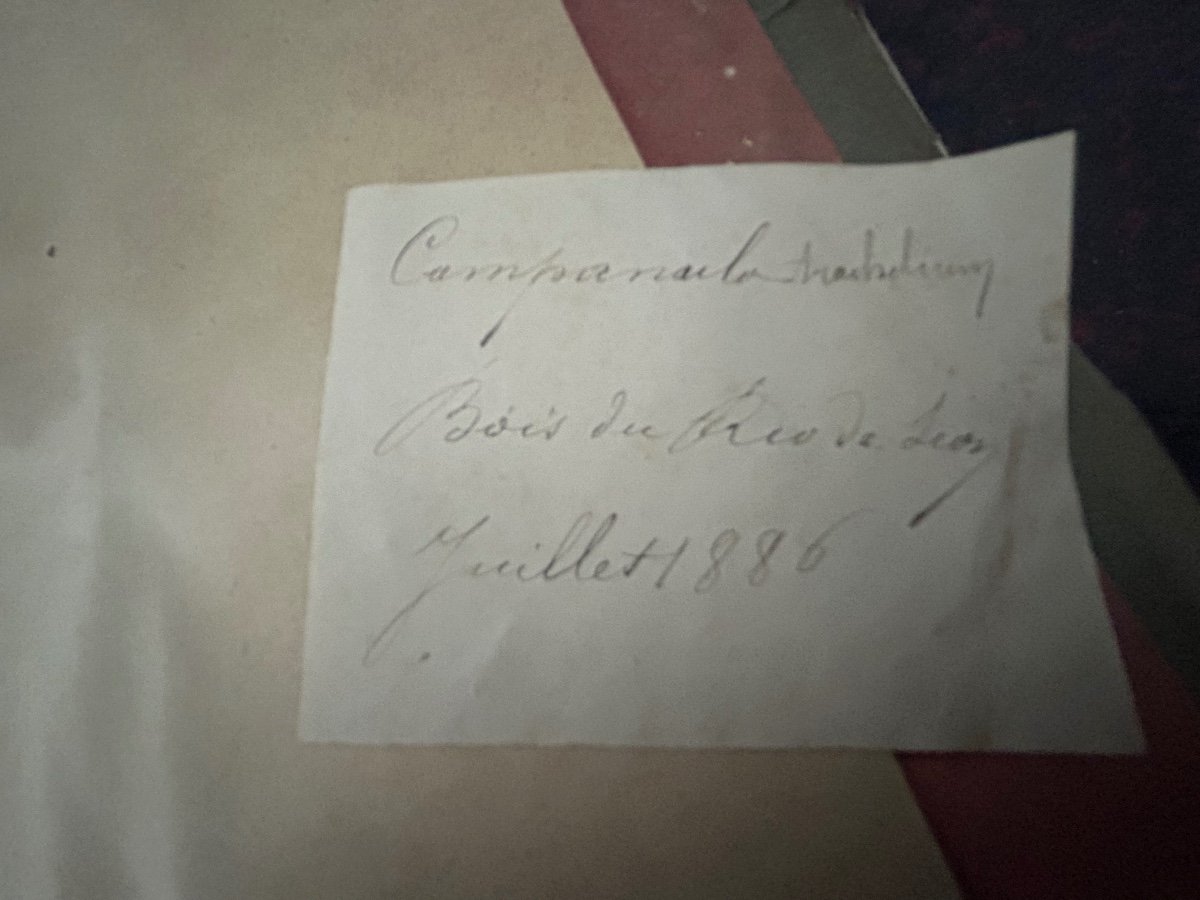 Campanula trachelium
Bois du
Juillet 1886